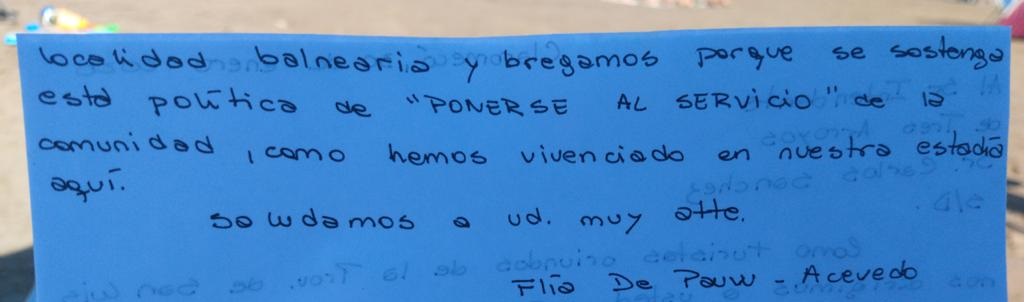 localidad balnearia y bregamos porque se sostenga
esta política de "PONERSE AL SERVICIO" de la
comunidad, como hemos vivenciado en nuestra estadía
aquí.
Saludamos a ud. muy atte.
Flia De Pauw - Acevedo